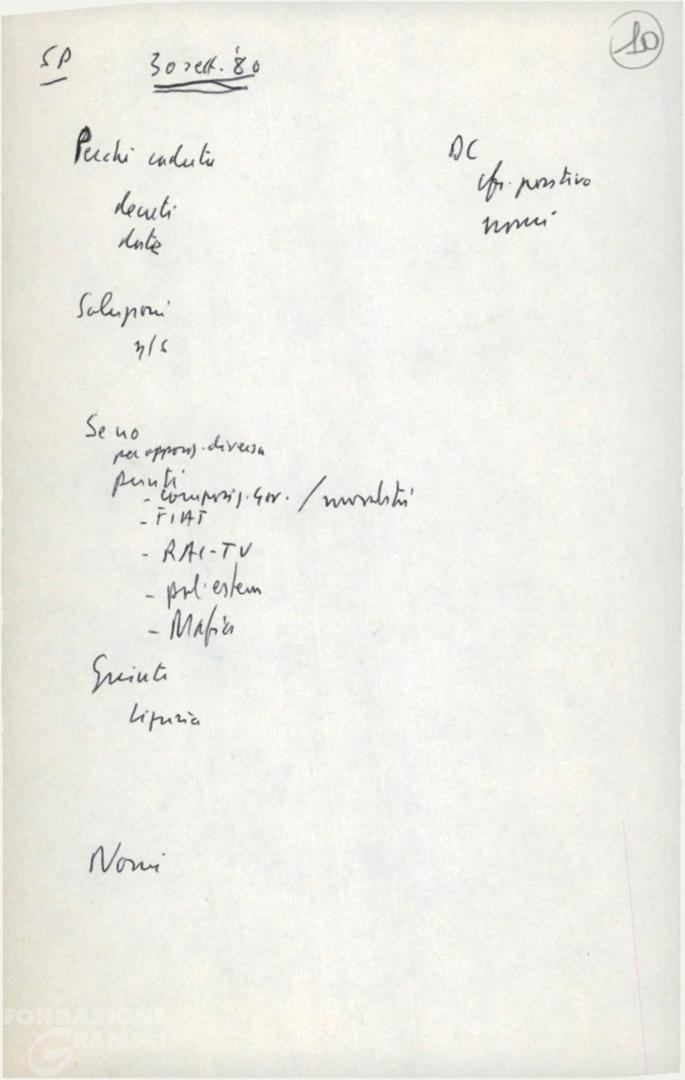 10
SP 30 sett. '80
Perché caduta
decreti
date
DC
cfr. positivo
nomi
Soluzioni
n/s
Se no
per oppos. diversa
punti
- composiz. gov. / moralità
- FIAT
- RAI-TV
- pol. estera
- Mafia
Giunte
Liguria
Nomi
FONDAZIONE
GRAMSCI